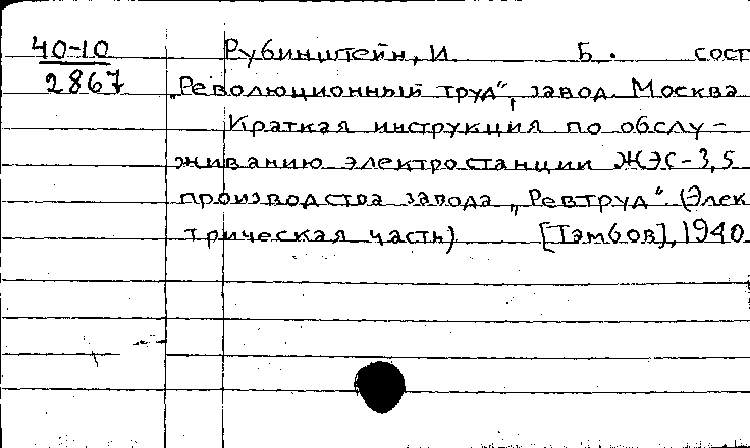 40-10 Рубинштейн, И. Б. сост
2867 „Революционный труд", завод. Москва
Краткая инструкция по обслу-
живанию электростанции ЖЭС-3,5
производства завода „Ревтруд". (Элек
трическая часть) [Тамбов], 1940